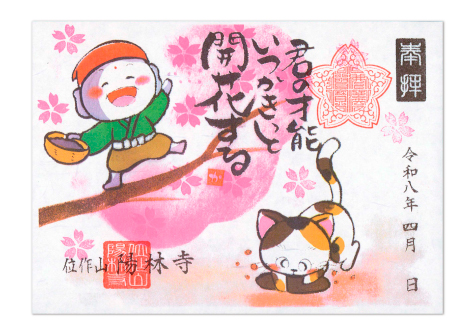 奉拝
君の才能
いつかきっと
開花する
令和八年 四月 日
位作山 陽林寺